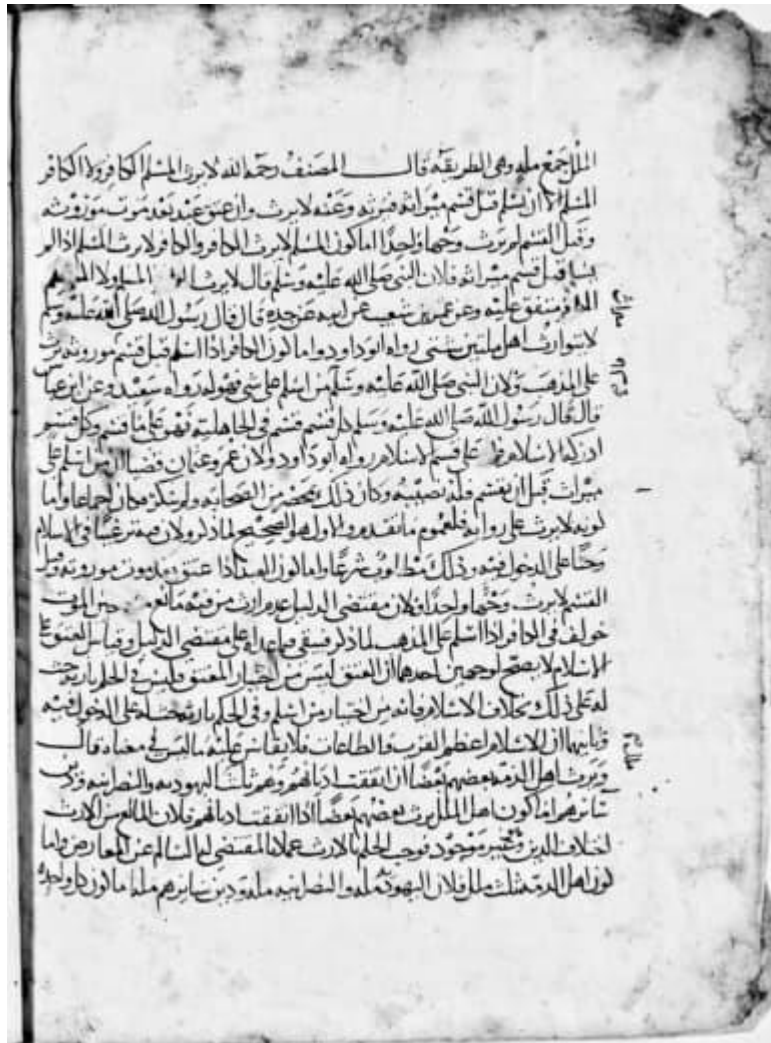 الملل جمع ملة وهي الطريقة قال المصنف رحمه الله لا يرث المسلم الكافر ولا الكافر
المسلم الا ان يسلم قبل قسم ميراثه فيرثه وعنه لا يرث وان عتق عبد بعد موت موروثه
وقبل القسم لم يرث وجها واحدا اما كون المسلم لا يرث الكافر والكافر لا يرث المسلم اذا لم
يسلم قبل قسم ميراثه فلان النبي صلى الله عليه وسلم قال لا يرث المسلم ولا
الكافر متفق عليه وعن عمرو بن شعيب عن ابيه عن جده قال قال رسول الله صلى الله عليه وسلم
لا يتوارث اهل ملتين شتى رواه ابو داود واما كون الكافر اذا اسلم قبل قسم موروثه يرث
على المذهب فلان النبي صلى الله عليه وسلم من اسلم على شي فهو له رواه سعيد وعن ابن عباس
قال قال رسول الله صلى الله عليه وسلم كل قسم قسم في الجاهلية فهو على ما قسم وكل قسم
ادركه الاسلام على قسم الاسلام رواه ابو داود ولان عمر وعثمان قضيا ان من اسلم على
ميراث قبل ان يقسم فله نصيبه وكان ذلك بمحضر من الصحابة ولم ينكر فكان اجماعا واما
كونه لا يرث على رواية فلعموم ما تقدم والاول هو الصحيح لما ذكر ولان فيه ترغيبا في الاسلام
وحثا على الدخول فيه وذلك مطلوب شرعا واما كون العبد اذا عتق بعد موت موروثه وقبل
القسم لا يرث وجها واحدا فلان مقتضى الدليل عدم ارث من فيه مانع حين الموت
خولف في الكافر اذا اسلم على المذهب لما ذكر فبقي ما عداه على مقتضى الدليل وقياس العتق على
الاسلام لا يصح لوجهين احدهما ان العتق ليس من اختيار المعتق وليس في الحكم بارثه حث
له على ذلك بخلاف الاسلام فانه من اختيار من اسلم وفي الحكم بارثه حث له على الدخول فيه
وثانيهما ان الاسلام اعظم القرب والطاعات فلا يقاس عليه ما ليس في معناه قال
ويرث اهل الذمة بعضهم بعضا ان اتفقت اديانهم وهم ثلث اليهودية والنصرانية ودين
سائرهم اما كون اهل الملل يرث بعضهم بعضا اذا اتفقت اديانهم فلان المانع من الارث
اختلاف الدين وهو غير موجود فوجب الحكم بالارث عملا بالمقتضى له السالم عن المعارض واما
كون اهل الذمة ثلث ملل فلان اليهودية ملة والنصرانية ملة ودين سائرهم ملة اما كون كل واحدة